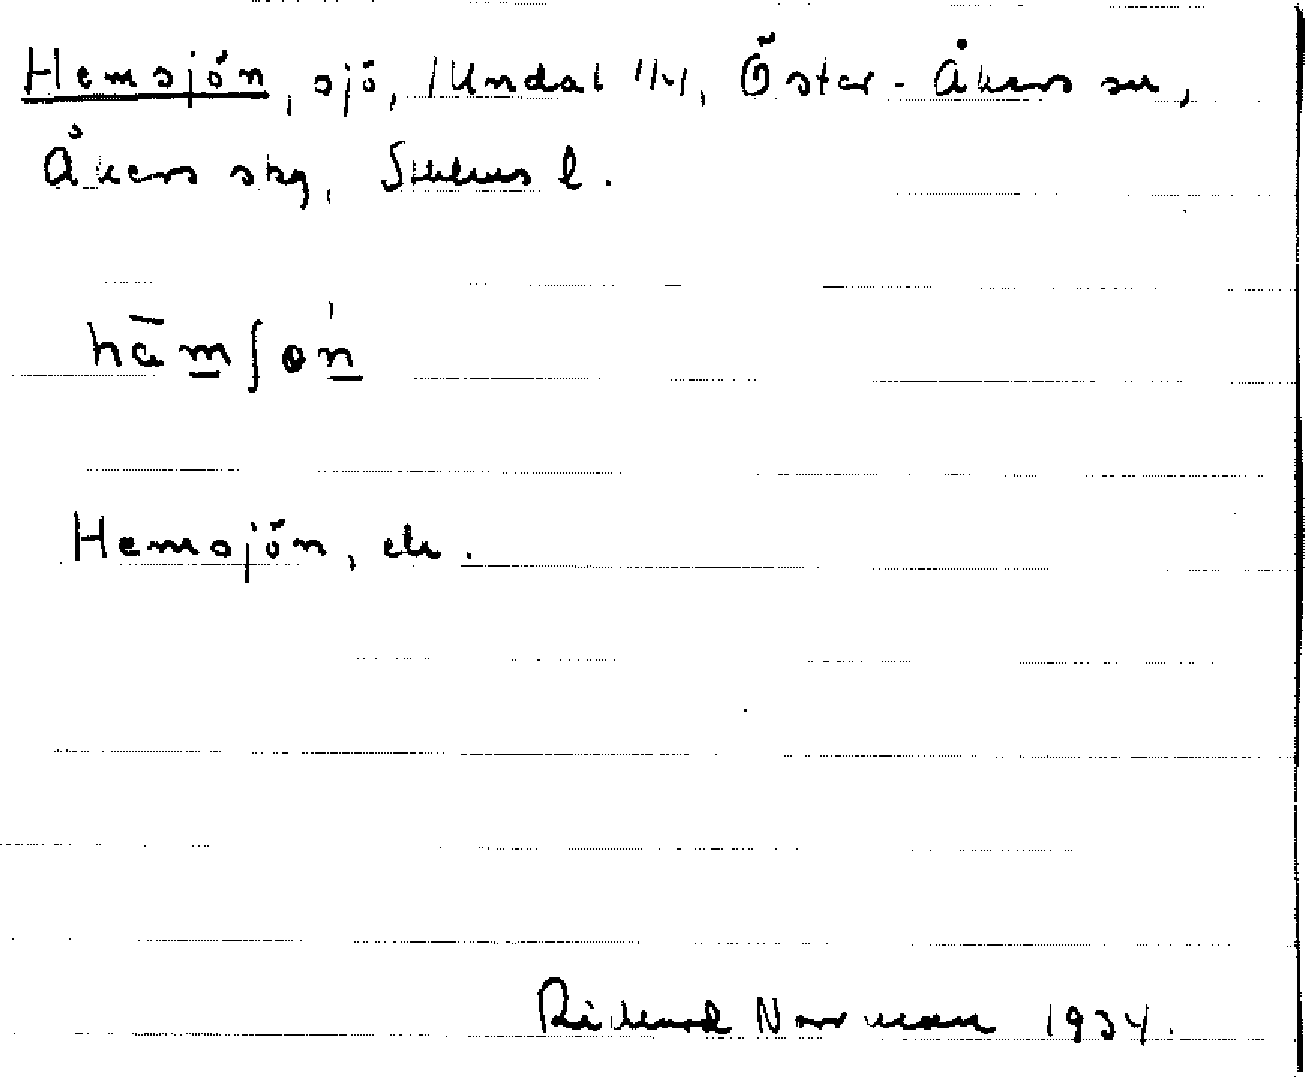 Hemsjön, sjö, Kundal 1/4, Öster-Åkers sn,
Åkers skg, Sthlms l.
hāmʃøǹ
Hemsjön, ek.
Rickard Norrman 1934.